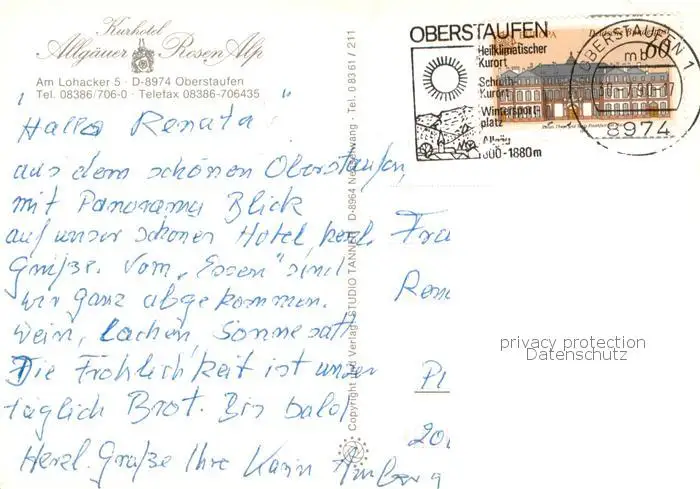 Kurhotel
Allgäuer Rosen Alp
Am Lohacker 5 · D-8974 Oberstaufen
Tel. 08386/706-0 · Telefax 08386-706435
"Hallo Renata"
aus dem schönen Oberstaufen,
mit Panorama Blick
auf unser schönes Hotel, herzl.
Grüße. Vom „Essen" sind
wir ganz abgekommen.
Wein, Lachen, Sonne satt
Die Fröhlichkeit ist unser
täglich Brot. Bis bald
Herzl. Grüße Ihre Karin
Copyright und Verlag: STUDIO TANNER · D-8964 Nesselwang · Tel. 0 83 61 / 211
OBERSTAUFEN
Heilklimatischer
Kurort
Schroth-
Kurort
Wintersport-
platz
Allgäu
600-1880m
60
OBERSTAUFEN 1
mb
8974
Fra
Ren
Pl
privacy protection
Datenschutz